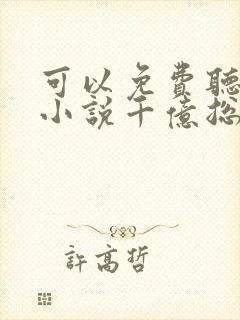 可以免費聽
小說千億總
許高哲